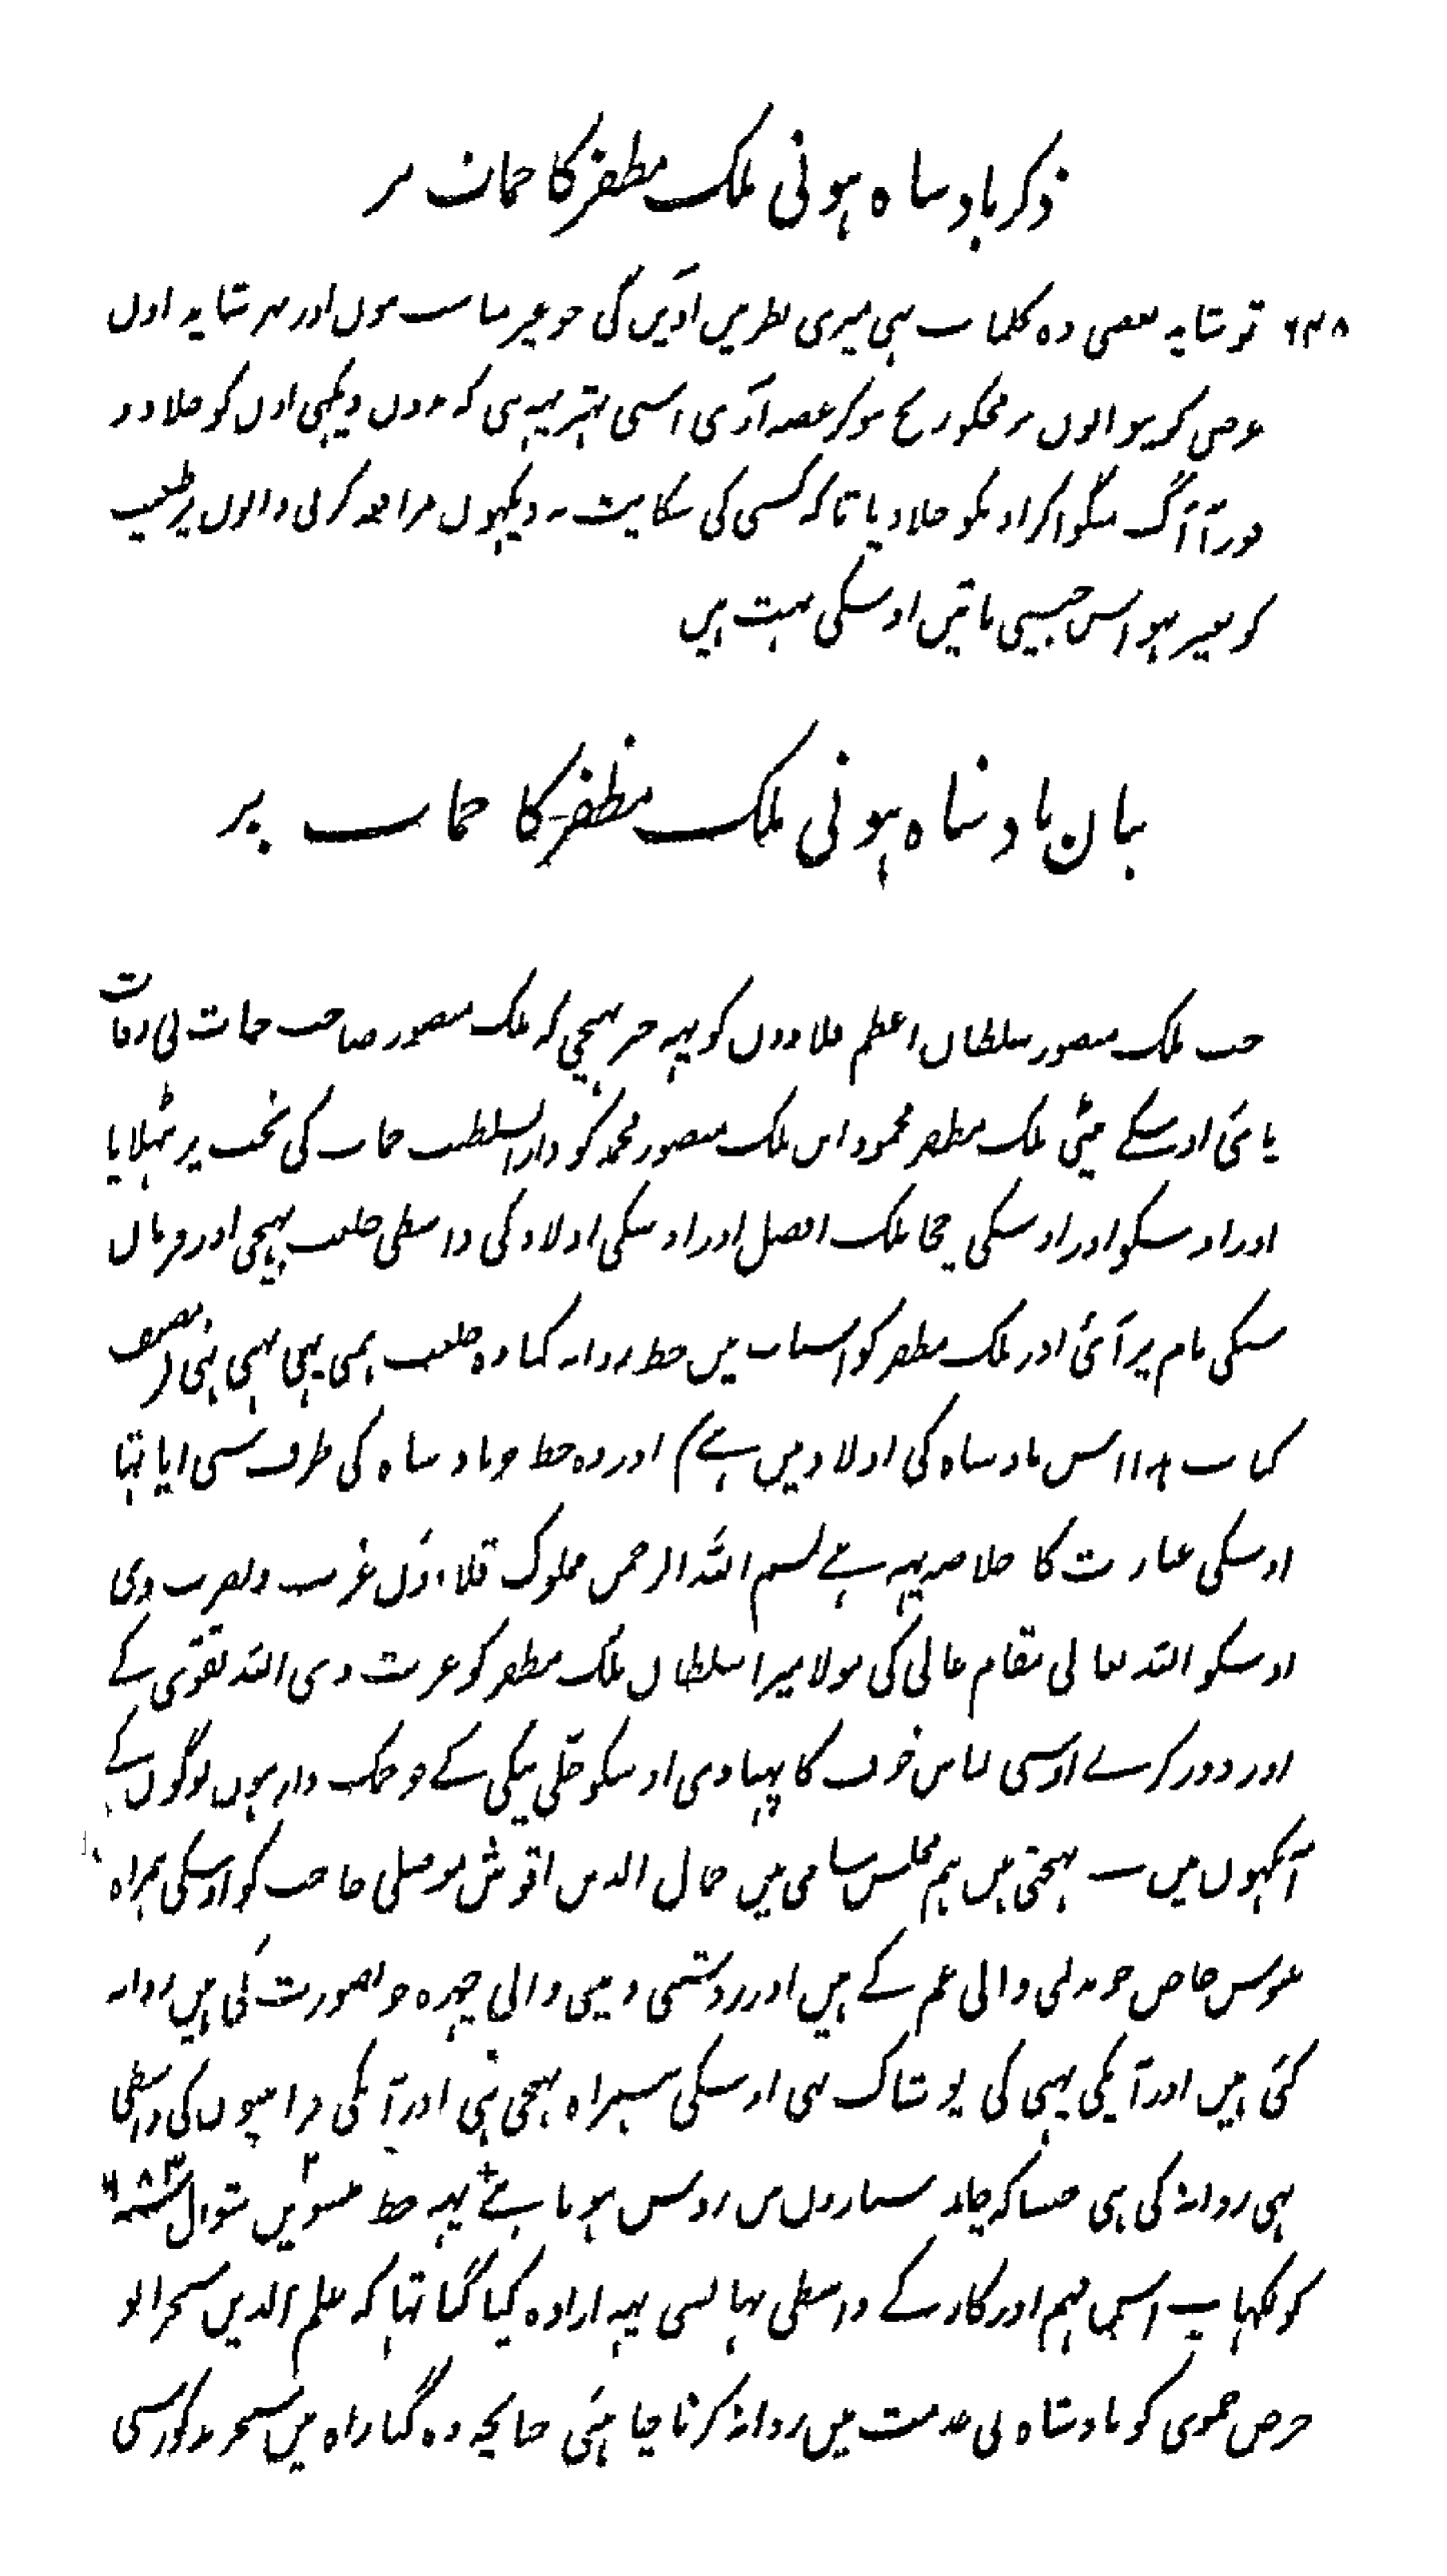 ذکر بادشاہ ہونی ملک مظفر کا حمات پر
۶۳۸ تو شاید بعضی وہ کلمات بہی میری نظر میں اوئیں گی جو غیر مناسب ہوں اور پہر شاید اول
عرض کریو الوں پر مجکو رنج ہو کر غصہ آوی اسی بہتر یہہ ہی کہ بدون دیکہی اول کو جلا دو
فوراً آگ منگوا کر اونکو جلا دیا تا کہ کسی کی شکایت نہ دیکہوں مرافعہ کرنی والوں پر
کو ہو اس جیسی باتیں اوسکی بہت ہیں
بیان بادشاہ ہونی ملک مظفر کا حمات پر
جب ملک منصور سلطان اعظم قلاووں کو یہہ خبر پہنچی کہ ملک منصور صاحب حمات نی وفات
پائی اوسکے بیٹی ملک مظفر محمود ابن ملک منصور محمد کو دار السلطنت حمات کی تخت پر بٹہلایا
اور اوسکو اور اوسکی چچا ملک افضل اور اوسکی اولاد کی واسطی خلعت بہیجی اور فرمان
سکی نام پر آئی اور ملک مظفر کو اس باب میں خط روانہ کیا وہ خلعت ہمنی بہی پہنی تہی (مصنف
کتاب ہذا اس بادشاہ کی اولاد میں ہے) اور وہ خط جو بادشاہ کی طرف سی ایا تہا
اوسکی عبارت کا خلاصہ یہہ ہے بسم اللہ الرحمن مملوک قلاوون عزت و نصرت دی
اوسکو اللہ تعالی مقام عالی کی مولا میرا سلطان ملک مظفر کو عزت دی اللہ تقوی کے
اور دور کرے اوسی لباس خوف کا پہنا دی اوسکو حلی نیکی کے جو چمک دار ہوں لوگوں کے
آنکہوں میں بہیجتی ہیں ہم مجلس سامی میں جمال الدین اقوش موصلی حاجب کو اوسکی ہمراہ
ملبوس خاص جو بدلنی والی غم کے ہیں اور روشنی دینی والی چہرہ خوبصورت کی ہیں روانہ
کئی ہیں اور آپکی پہنی کی پوشاک بہی اوسکی ہمراہ بہیجی ہی اور آپکی قرابتیوں کی واسطی
بہی روانہ کی ہی جیسا کہ چاند ستاروں میں روشن ہوتا ہے یہہ خط بیسویں شوال ۶۸۳
کو لکہا ہے اسی مہم اور کار کے واسطی یہانسی یہہ ارادہ کیا گیا تہا کہ علم الدین سنجر ابو
خرص حموی کو بادشاہ کی خدمت میں روانہ کرنا چاہئی چنانچہ وہ گیا راہ میں سنجر مذکور سی